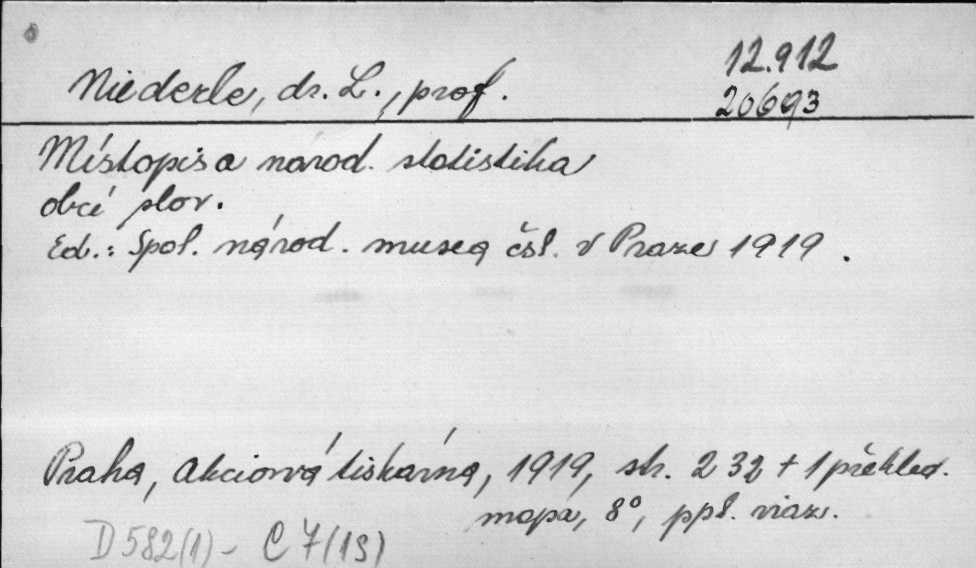 12.912
Niederle, dr. L., prof.
20693
Místopis a národ. statistika
obcí slov.
Ed.: Spol. národ. musea čsl. v Praze 1919.
Praha, Akciová tiskárna, 1919, str. 232 + 1 přehled.
mapa, 8°, ppl. viaz.
D 582(1) - C 7(19)